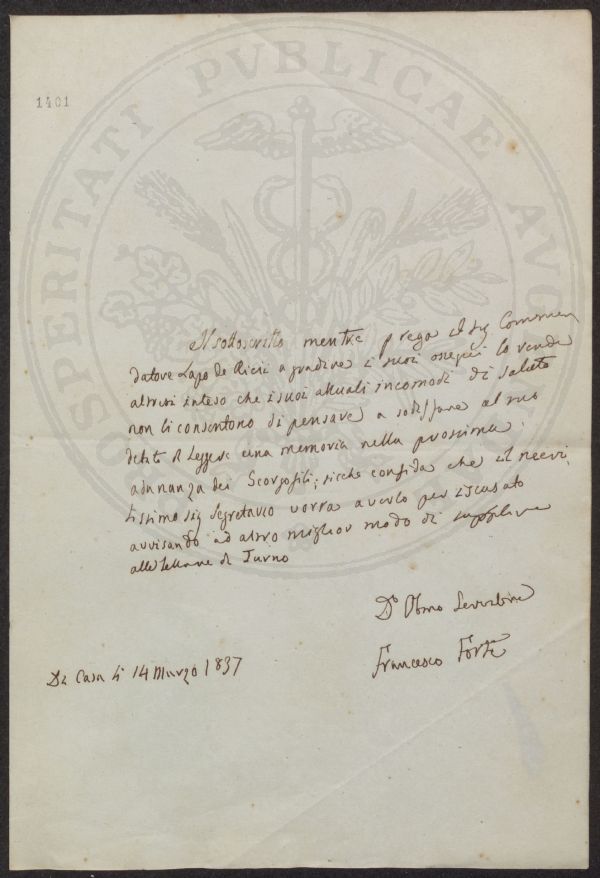 PROSPERITATI PVBLICAE AVG
1401
Il sottoscritto mentre prega il Sig Commen
datore Lapo de Ricci a gradire i suoi ossequi lo rende
altresi inteso che i suoi attuali incomodi di salute
non li consentono di pensare a sodisfare al suo
debito di Leggere una memoria nella prossima
adunanza dei Georgofili; sicche confida che il
tissimo Sig Segretario vorra averlo per iscusato
avvisando ad altro miglior modo di supplire
alle letture di Turno
Do Obmo Servitore
Francesco Forti
Di Casa li 14 Marzo 1837